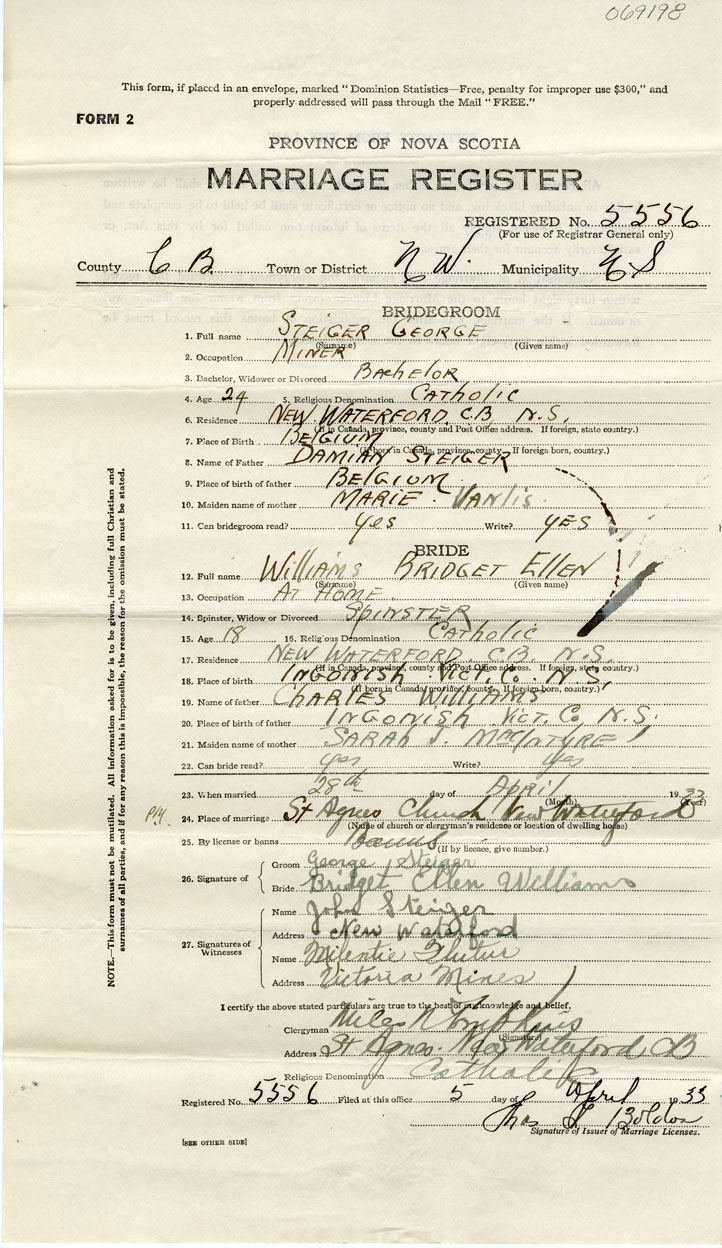 069198
This form, if placed in an envelope, marked "Dominion Statistics—Free, penalty for improper use $300," and
properly addressed will pass through the Mail "FREE."
FORM 2
PROVINCE OF NOVA SCOTIA
MARRIAGE REGISTER
REGISTERED No. 5556
(For use of Registrar General only)
County C B. Town or District N W. Municipality N S
BRIDEGROOM
1. Full name STEIGER GEORGE
(Surname) (Given name)
2. Occupation MINER
3. Bachelor, Widower or Divorced BachELOR
4. Age 24 5. Religious Denomination CATHOLIC
6. Residence NEW WATERFORD, C.B. N.S,
(If in Canada, province, county and Post Office address. If foreign, state country.)
7. Place of Birth BELGIUM
(If born in Canada, province, county. If foreign born, country.)
8. Name of Father DAMIAN STEIGER
9. Place of birth of father BELGIUM
10. Maiden name of mother MARIE. VANLIS
11. Can bridegroom read? yes Write? yES
BRIDE
12. Full name WilliAMS BRIDGET ELLEN
(Surname) (Given name)
13. Occupation AT HOME
14. Spinster, Widow or Divorced SPINSTER
15. Age 18 16. Religious Denomination CATHOLIC
17. Residence NEW WATERFORD. C.B. N.S.
(If in Canada, province, county and Post Office address. If foreign, state country.)
18. Place of birth INGONISH VICT. Co. N.S,
(If born in Canada, province, county. If foreign born, country.)
19. Name of father CHARLES WILLIAMS
20. Place of birth of father INGONISH VICT. Co, N.S.
21. Maiden name of mother SARAH J. MacINTYRE
22. Can bride read? yes Write? yes
23. When married 28th day of April 1933
(Month) (Year)
24. Place of marriage St Agnes Church New Waterford
(Name of church or clergyman's residence or location of dwelling house)
25. By license or banns Banns
(If by licence, give number.)
26. Signature of
Groom George Steiger
Bride Bridget Ellen Williams
27. Signatures of Witnesses
Name John Steiger
Address New Waterford
Name Milentie
Address Victoria Mines
I certify the above stated particulars are true to the best of my knowledge and belief.
Clergyman Miles N Tompkins
(Signature)
Address St Agnes. New Waterford, CB
Religious Denomination Catholic
Registered No. 5556 Filed at this office 5 day of April 1933
Thos
Signature of Issuer of Marriage Licenses.
[SEE OTHER SIDE]
NOTE.—This form must not be mutilated. All information asked for is to be given, including full Christian and
surnames of all parties, and if for any reason this is impossible, the reason for the omission must be stated.